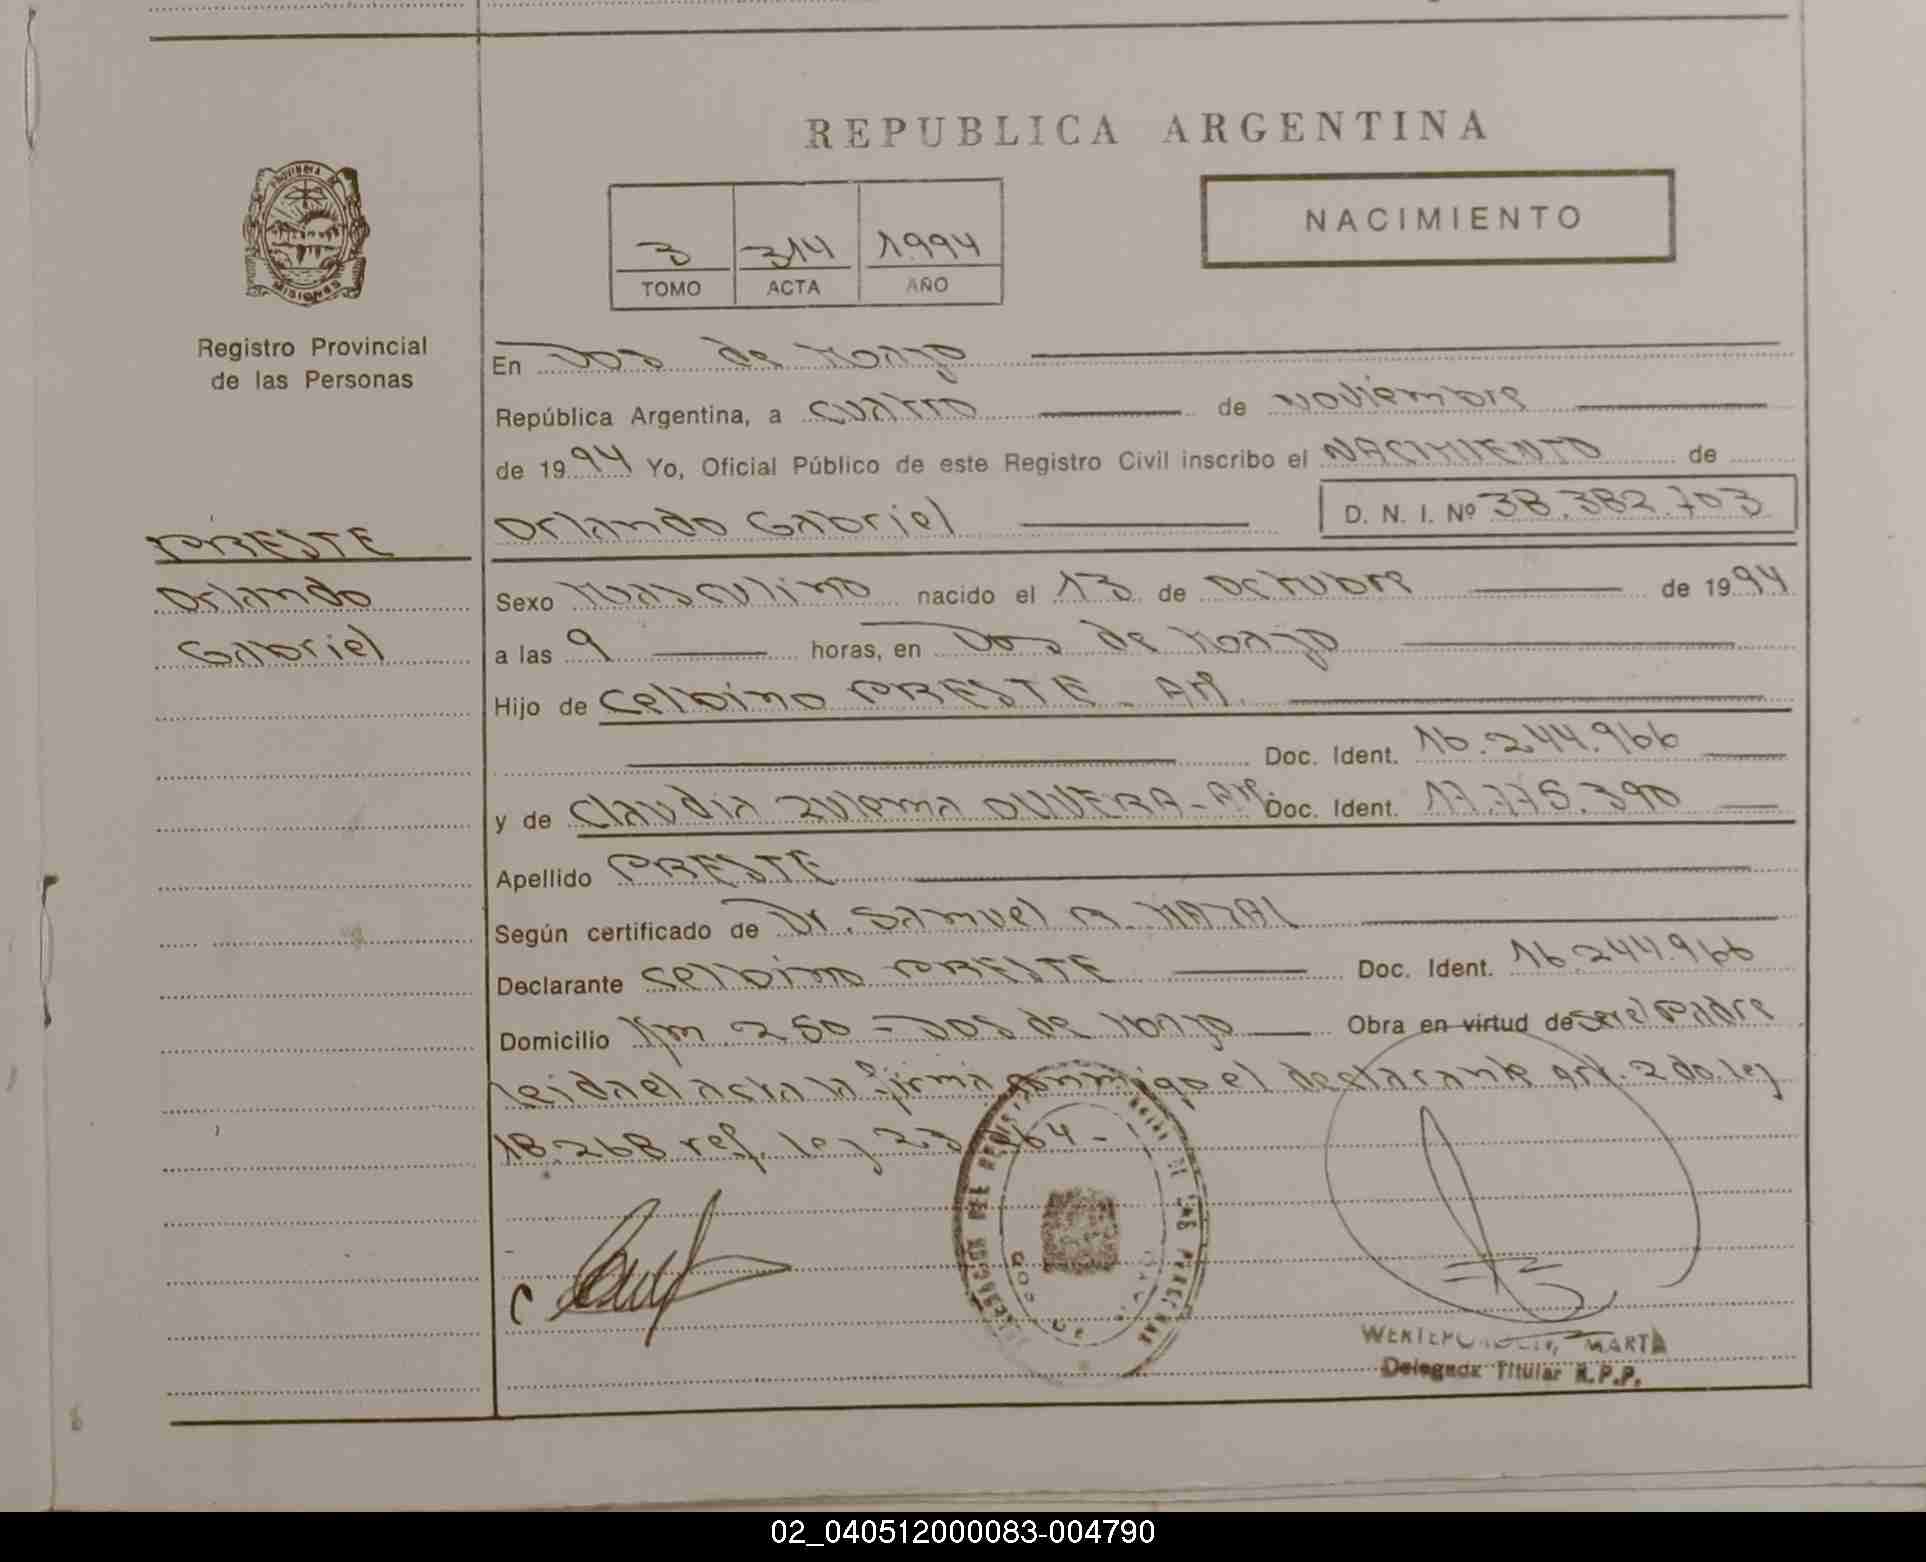 REPUBLICA ARGENTINA
PROVINCIA DE
MISIONES
Registro Provincial
de las Personas
3 314 1994
TOMO ACTA AÑO
NACIMIENTO
En Dos de Mayo
República Argentina, a cuatro de noviembre
de 1994 Yo, Oficial Público de este Registro Civil inscribo el NACIMIENTO de
Orlando Gabriel D. N. I. Nº 38.382.703
PRESTE
Orlando
Gabriel
Sexo Masculino nacido el 13 de octubre de 1994
a las 9 horas, en Dos de Mayo
Hijo de Celbino PRESTE - AR.
Doc. Ident. 16.244.966
y de Claudia Zulema OLIVERA - AR. Doc. Ident. 17.775.390
Apellido PRESTE
Según certificado de Dr. Samuel A. MAZAL
Declarante Celbino PRESTE Doc. Ident. 16.244.966
Domicilio Km 250 - Dos de Mayo Obra en virtud de ser el Padre
Leida el acta la firma conmigo el declarante Art. 2do. ley
18.268 ref. ley 23.264 -
MARTA
Delegada Titular R.P.P.
02_040512000083-004790